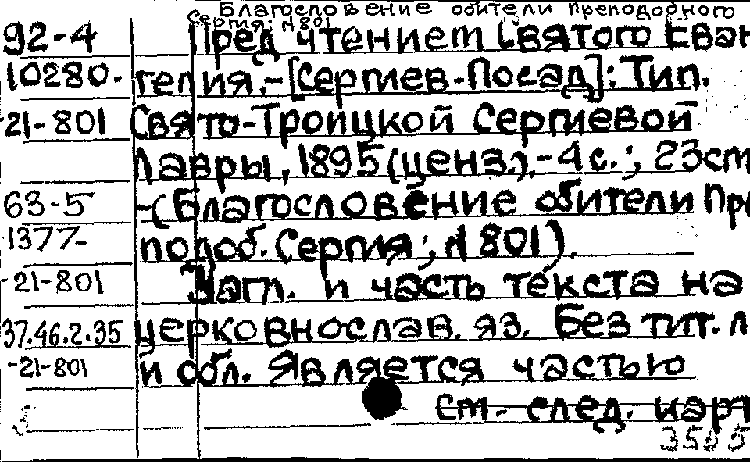 Благословение обители преподобного
Сергия; №801
92-4 Пред чтением Святого Еван
10280- гелия.-[Сергиев-Посад]: Тип.
-21-801 Свято-Троицкой Сергиевой
Лавры, 1895 (ценз.).-4с.; 23см
63-5 -(Благословение обители Пре
1377- подоб. Сергия; №801).
-21-801 Загл. и часть текста на
37.46.2.35 церковнослав. яз. Без тит. л
-21-801 и обл. Является частью
См. след. карт